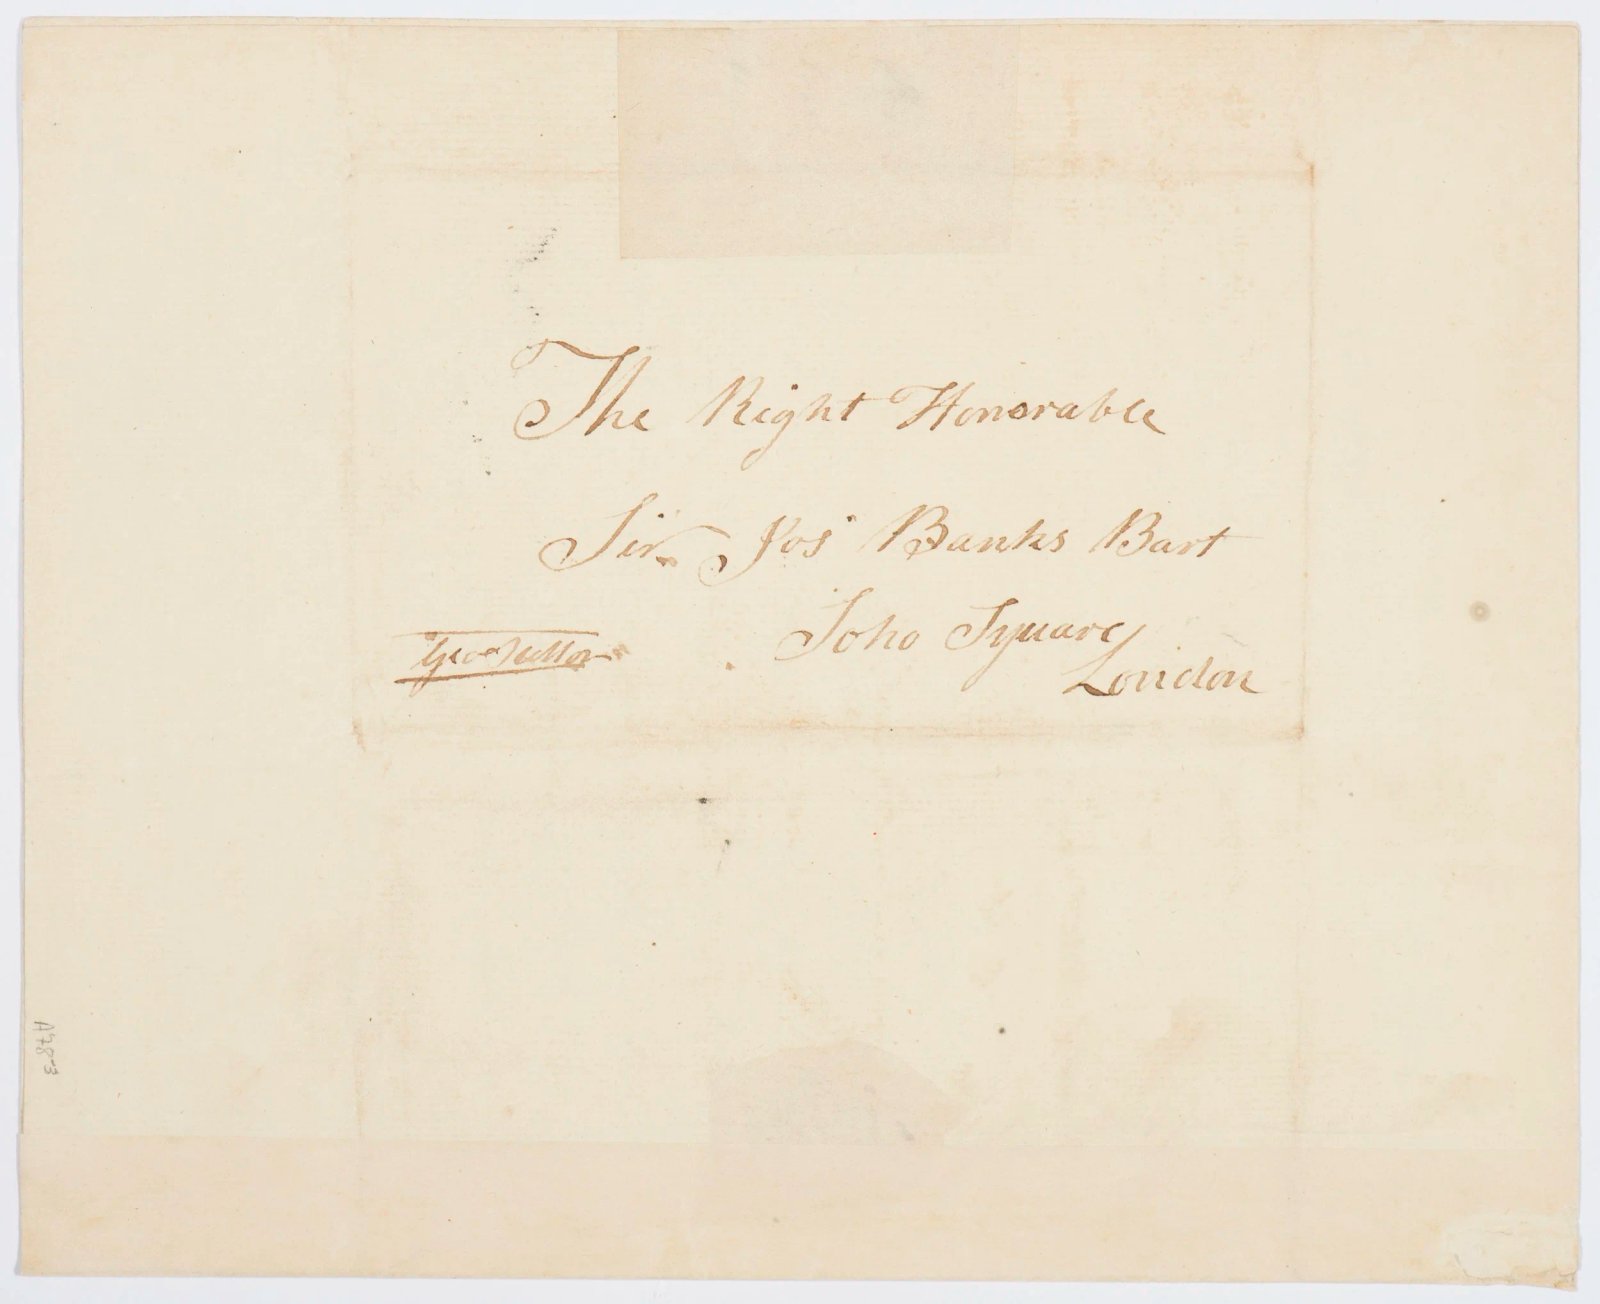 The Right Honorable
Sir Jos Banks Bart
Soho Square
London
Geo Suttor
A78-3